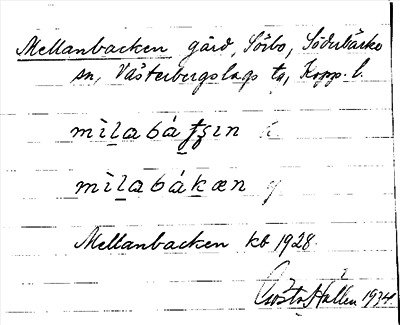 Mellanbacken gård, Sörbo, Söderbärke
sn, Västerbergslags ts, Kopp. l.
mìlabát̯ʂɪn
mìlabákæn
Mellanbacken kb 1928.
Gösta Hallen 1934.